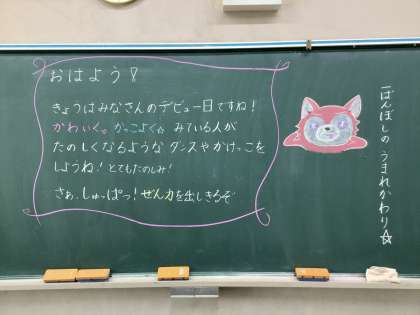 おはよう!
きょうはみなさんのデビュー日ですね!
かわいく。かっこよく☆ みている人が
たのしくなるような ダンスやかけっこを
しようね! とてもたのしみ!
さぁ、しゅっぱつ! ぜん力を出しきるぞ
一ばんぼしの うまれかわり☆